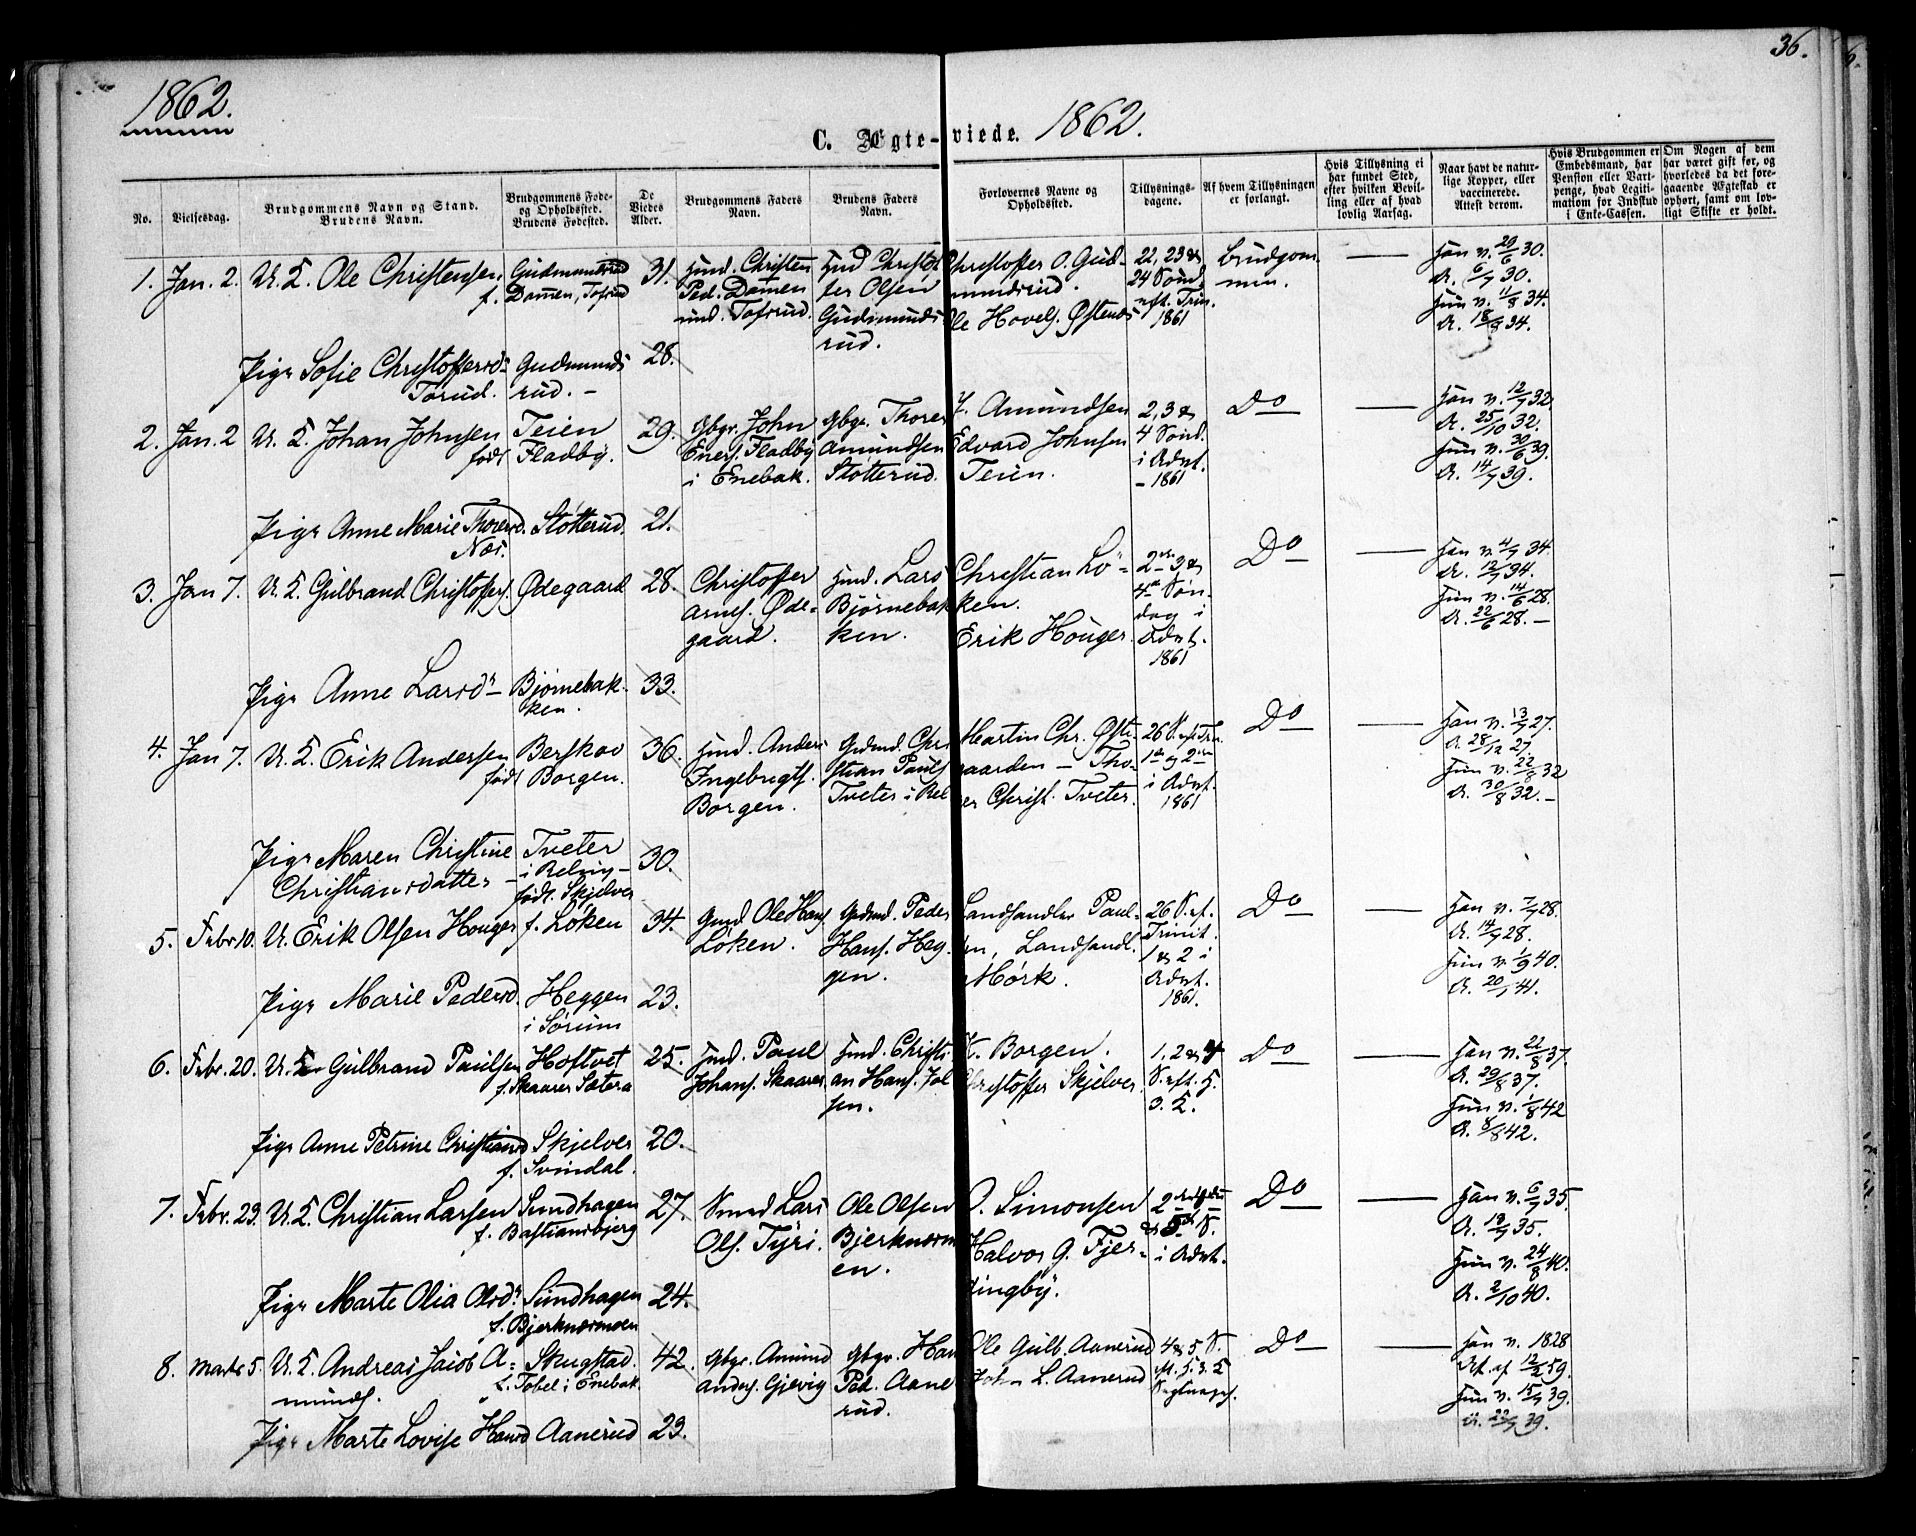 36.
1862.
1862.
C. Ægte-viede.
No.
Vielsesdag.
Brudgommens Navn og Stand.
Brudens Navn.
Brudgommens Føde-
og Opholdssted.
Brudens Fødested.
De
Viedes
Alder.
Brudgommens Faders
Navn.
Brudens Faders
Navn.
Forlovernes Navne og
Opholdssted.
Tillysnings-
dagene.
Af hvem Tillysningen
er forlangt.
Hvis Tillysning ei
har fundet Sted,
efter hvilken Bevil-
ling eller af hvad
lovlig Aarsag.
Naar havt de natur-
lige Kopper, eller
vaccinerede.
Attest derom.
Hvis Brudgommen er
Embedsmand, har
Pension eller Vart-
penge, hvad Legiti-
mation for Indskud
i Enke-Cassen.
Om Nogen af dem
har været gift før, og
hvorledes da det fore-
gaaende Ægteskab er
ophørt, samt om lov-
ligt Skifte er holdt.
1. Jan. 2.
U. K. Ole Christensen
Gudmundsrud
f. Damen, Tofsrud
31.
Husm. Christen
Ped. Damen
und. Tofsrud.
Husm. Christof
fer Olsen
Gudmunds
rud.
Christoffer O. Gud-
mundsrud.
Ole Hovels. Østenes
22, 23 &
24 Sønd.
eft. Trin.
1861
Brudgom
men.
Han v. 20/6 30.
A. 6/7 30.
Hun v. 11/8 34.
A. 18/8 34.
Pige Sofie Christoffersd.
Torud.
Gudmunds
rud. -
28.
2. Jan. 2
U. K. Johan Johnsen
født
Teien
Fladby.
29.
Gbr. John
Eners. Fladby
i Enebak.
Gbr. Thorer
Amundsen
Stotterud.
Amundsen
Edvard Johnsen
Teien.
2, 3 &
4 Sønd.
i Advt.
- 1861
Do
Han v. 12/7 32
A. 25/10 32.
Hun v. 30/6 39.
A. 14/7 39.
Pige Anne Marie Thoresd.
Næs.
Stotterud.
21.
3. Jan 7.
U. K. Gulbrand Christoffers.
Ødegaard
28.
Christoffer
Arnes. Øde-
gaard.
Husm. Lars
Bjørnebak
ken.
Christian Lö-
ken.
Erik Houger.
2den 3 &
4de Søn-
dag i
Advt.
1861
Do
Han v. 4/7 34.
A. 12/7 34.
Hun v. 14/6 28.
A. 22/6 28. -
Pige Anne Larsd.
Bjørnebak-
ken.
33.
4. Jan 7.
U. K. Erik Andersen
født
Berskov
Borgen.
36.
Husm. Anders
Ingebrigts.
Borgen.
Gdmd. Chri
stian Pauls.
Tveter i Rel
Martin Chr. Øste-
gaarden - Tho-
er Christ. Tveter.
26 S. eft. Tri.
1ste og 2den
i Advt.
1861
Do
Han v. 13/7 27.
A. 28/12 27.
Hun v. 22/8 32
A. 30/8 32. -
Pige Maren Christine
Christiansdatter
Tveter
i Reling-
født Skjelver
30.
5. Febr 10.
U. Erik Olsen Houger
f. Løken
34.
Gmd. Ole Hans.
Løken.
Gdmd. Peder
Hans. Heg-
gen.
Landhandler Paul-
en, Landhandl.
Mørk.
26 S. ef.
Trinit.
1 & 2 i
Advt.
1861.
Do
Han v. 7/7 28.
A. 14/7 28.
Hun v. 1/9 40.
A. 20/1 41.
Pige Marie Pedersd.
Heggen
i Sørum
23.
6. Febr. 20.
U. K. Gulbrand Paulsen
Hoftvet
f. Skaarer Sætera
25.
Husm. Paul
Johans. Skaarer
Husm. Christi-
an Hans. Jol
sen.
K. Borgen.
Christoffer Skjelver.
1, 2 & 4
S. eft. H.
3. K.
Do
Han v. 22/8 37.
A. 29/8 37.
Hun v. 1/8 42
A. 8/8 42.
Pige Anne Petrine Christiansd
Skjelver
f. Svindal.
20.
7. Febr. 23.
U. K. Christian Larsen
Sundhagen
f. Bastiansbjerg
27.
Smed Lars
Ols. Tyri.
Ole Olsen
Bjerknæsmo
en.
O. Simonsen
Halvor G. Fjer-
dingby.
i Advt.
Do
Han v. 6/7 35.
A. 12/7 35.
Hun v. 24/8 40.
A. 2/10 40.
Pige Marte Olia Olsd.
Sundhagen
f. Bjerknæsmoen
24.
8. Marts 5.
U. K. Andreas Jacob A-
munds.
Skugstad.
f. Tobel i Enebak
42.
Gbr. Amund
Anders. Gjevig
Gbr. Han
Ped. Aane
rud.
Ole Gulb. Aanerud
John L. Aanerud
4 & 5 S.
Do
Han v. 1828
Hun v. 15/7 39.
A. 22/7 39.
Pige Marte Lovise Hansd
Aanerud
23.